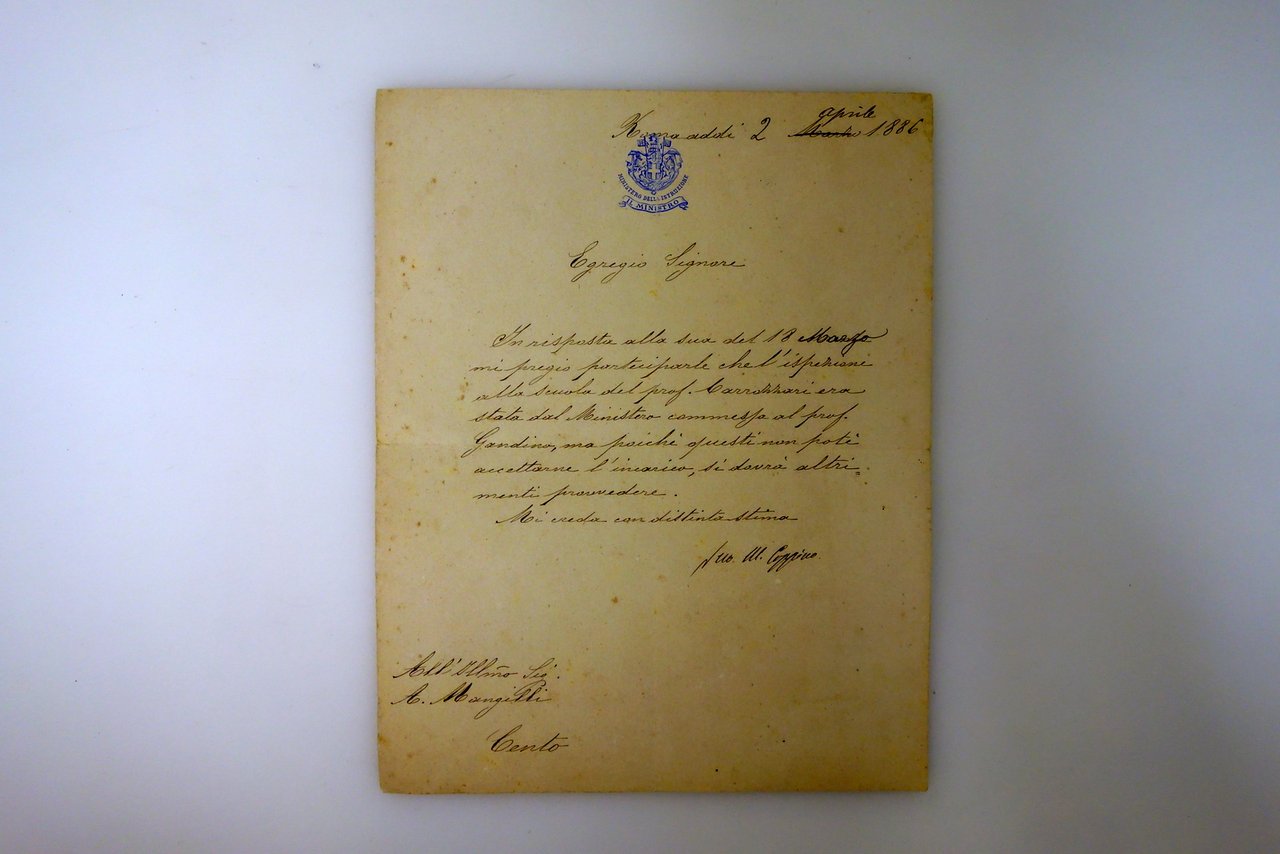 aprile
Roma addì 2 Marzo 1886
MINISTERO DELLA ISTRUZIONE
IL MINISTRO
Egregio Signore
In risposta alla sua del 18 Marzo
mi pregio parteciparle che l'ispezione
alla scuola del prof. Carrozzari era
stata dal Ministero commessa al prof.
Gandino, ma poichè questi non potè
accettarne l'incarico, si dovrà altri=
menti provvedere.
Mi creda con distinta stima
suo. M. Coppino
All' Illmo Sig.
A. Mangilli
Cento